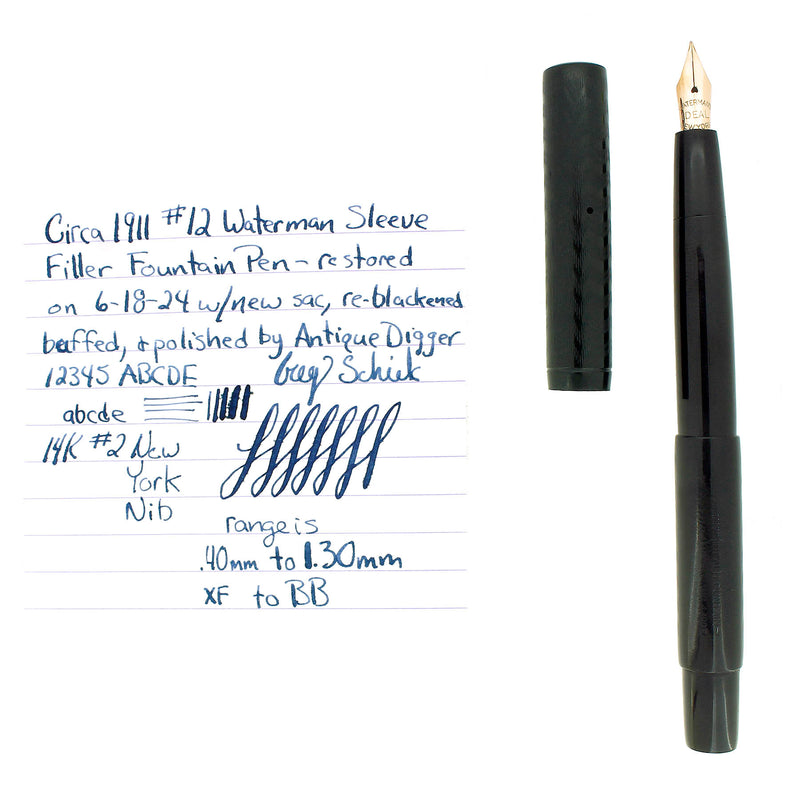 Circa 1911 #12 Waterman Sleeve
Filler Fountain Pen - restored
on 6-18-24 w/new sac, re-blackened
buffed, + polished by Antique Digger
12345 ABCDE Greg
abcde
14K #2 New
York
Nib
range is
.40mm to 1.30mm
XF to BB
DEAL